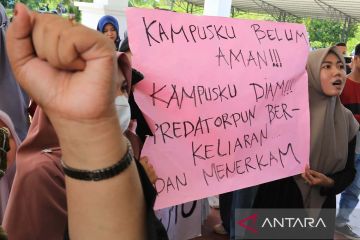 KAMPUSKU BELUM
AMAN!!!
KAMPUSKU DIAM!!!
PREDATORPUN BER-
KELIARAN
DAN MENERKAM
ANTARA